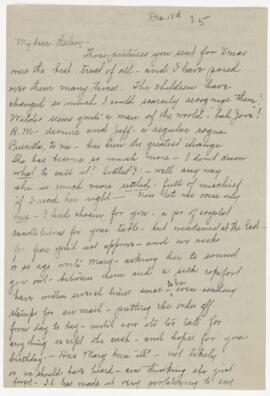 Dec 18th 35
My dear Helen -
Those pictures you sent for Xmas
were the best treat of all - and I have pored
over them many times. The children have
changed so much I could scarcely recognize them!
Walder seems quite a man of the world - bad Jove!
R.M - demure and Jeff - a regular rogue
Priscilla, to me - has been the greatest change
She has become so much more - I don't know
what to call it! Settled? - well any way
she is much more settled - full of mischief
if I read her right - Now let me once only
I had chosen for you - a pr of crystal
candelabras for your table - but
for fear you'd not approve - and two weeks
or so ago wrote Mary - asking her to sound
you out - between them and a silk comfort
have written several times since to him even sending
stamps for air mail - putting the order off
from day to day - until now it's too late for
anything except the cash - and hopes for your
birthday - Has Mary been ill - not likely
or we should have heard - am thinking she just
forgot - It has made it very perplexing to say